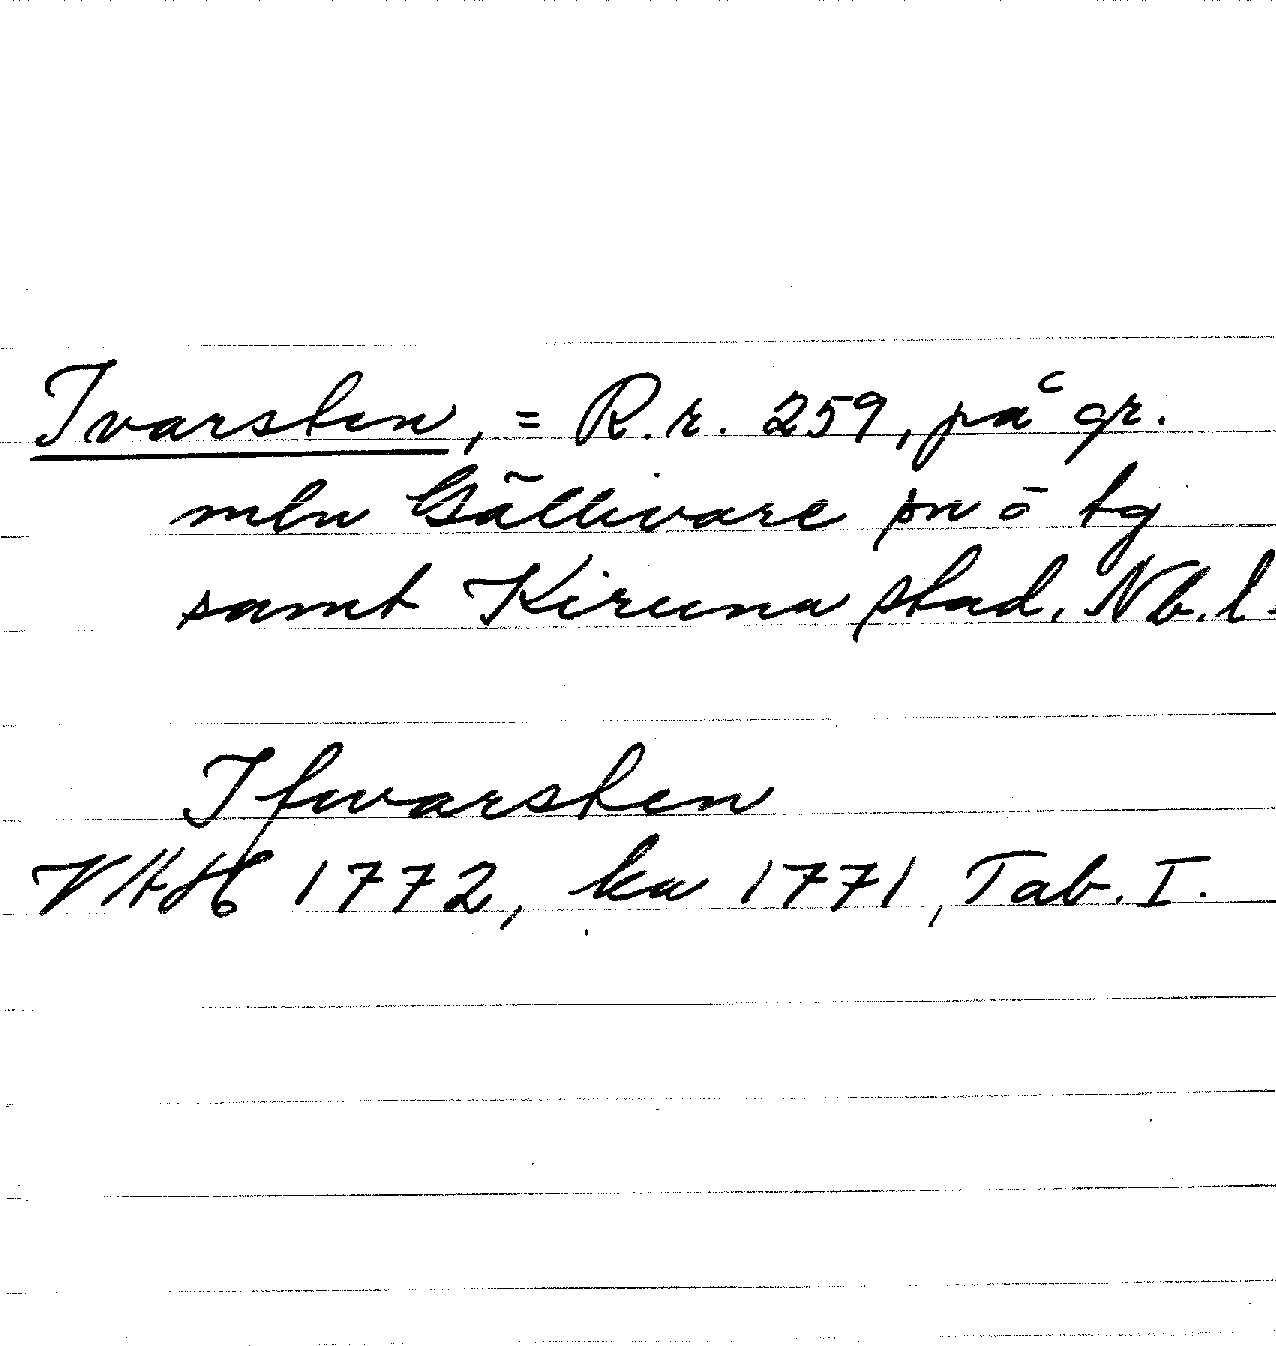 Ivarsten, = R.r. 259, på gr.
mln Gällivare sn o tg
samt Kiruna stad, Nb.l.
Ifwarsten
VHAH 1772, ka 1771, Tab. I.